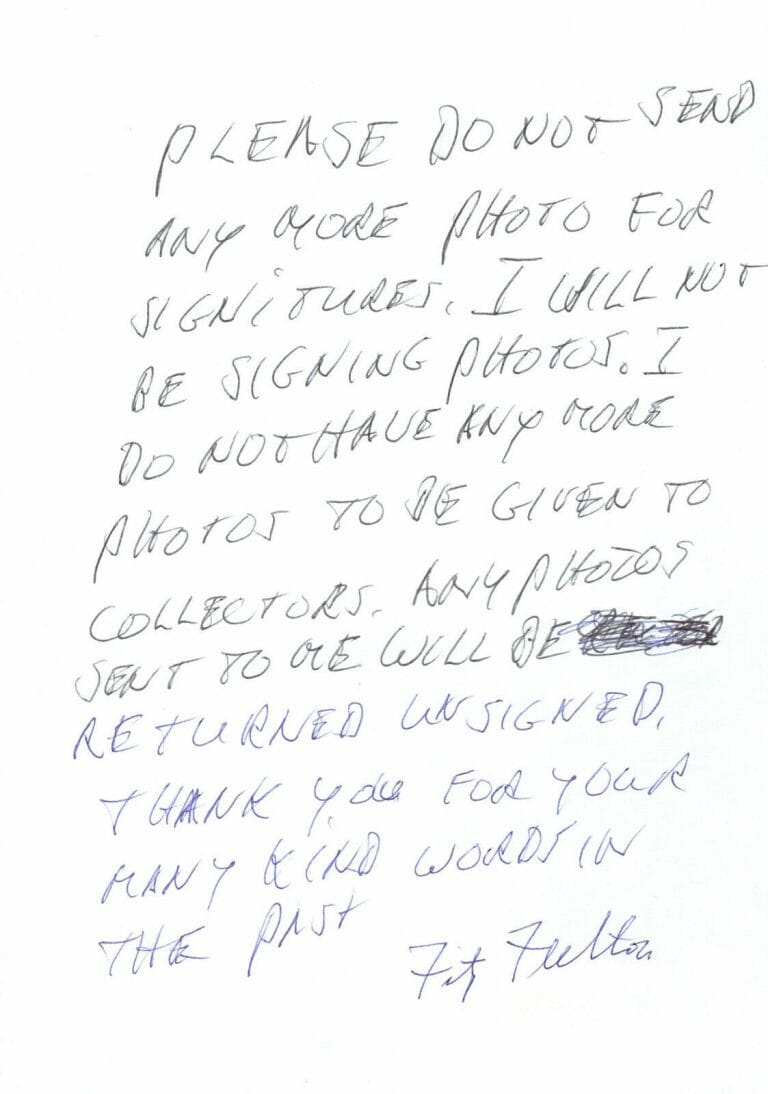 PLEASE DO NOT SEND
ANY MORE PHOTO FOR
SIGNITURES. I WILL NOT
BE SIGNING PHOTOS. I
DO NOT HAVE ANY MORE
PHOTOS TO BE GIVEN TO
COLLECTORS. ANY PHOTOS
SENT TO ME WILL BE
RETURNED UNSIGNED.
THANK YOU FOR YOUR
MANY KIND WORDS IN
THE PAST
Fitz Fulton